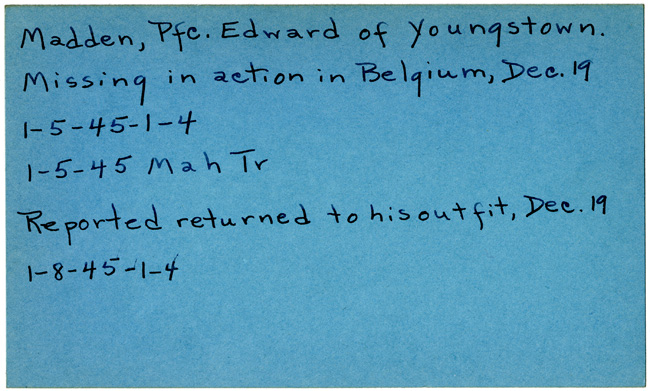 Madden, Pfc. Edward of Youngstown.
Missing in action in Belgium, Dec. 19
1-5-45-1-4
1-5-45 Mah Tr
Reported returned to his outfit, Dec. 19
1-8-45-1-4